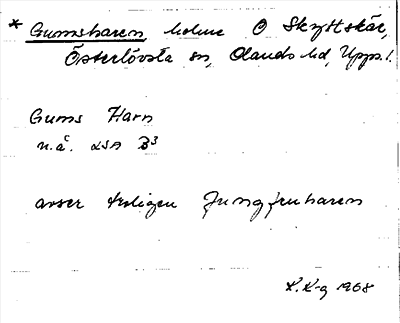 * Gumsharen, holme O Skyttskär,
Österlövsta sn, Olands hd, Upps. l.
Gums Harn
n.å. LSA B3
avser troligen Jungfruharen
K.K-g 1968